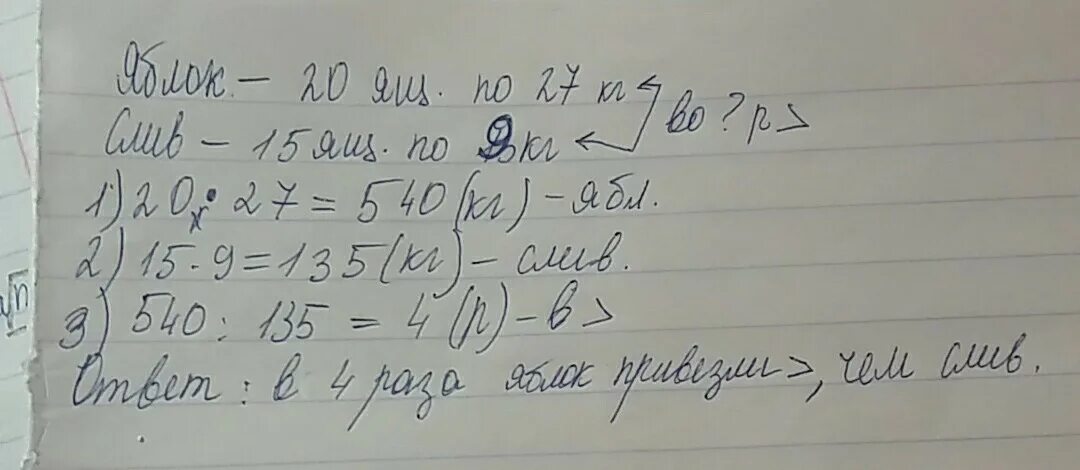 Яблок – 20 ящ. по 27 кг
во ? р >
Слив – 15 ящ. по 9 кг
1) 20 · 27 = 540 (кг) – ябл.
2) 15 · 9 = 135 (кг) – слив.
3) 540 : 135 = 4 (р) – в >
Ответ : в 4 раза яблок привезли >, чем слив.